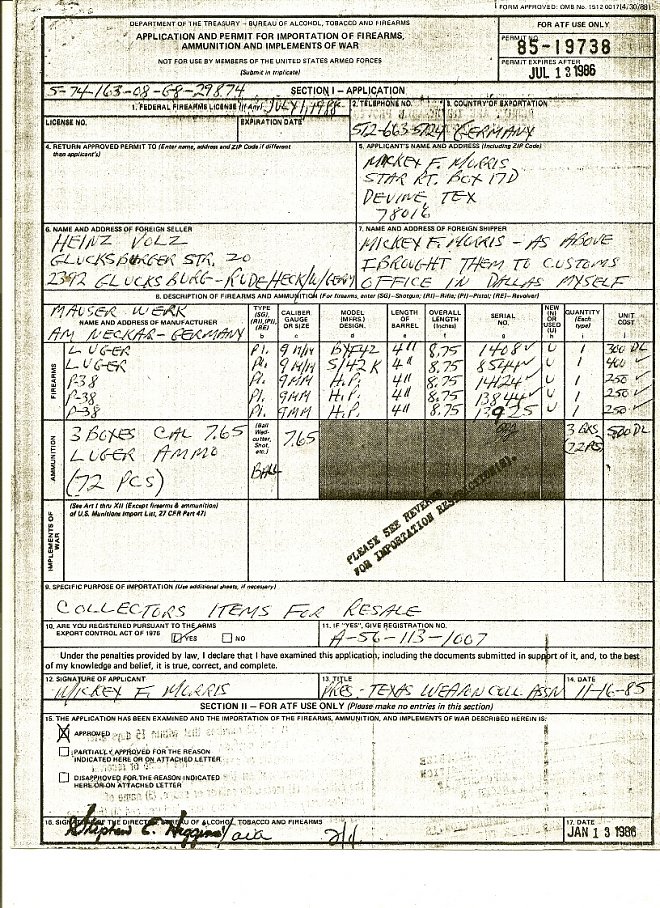 FORM APPROVED: OMB No. 1512-0017(4/30/88)
DEPARTMENT OF THE TREASURY – BUREAU OF ALCOHOL, TOBACCO AND FIREARMS
APPLICATION AND PERMIT FOR IMPORTATION OF FIREARMS,
AMMUNITION AND IMPLEMENTS OF WAR
NOT FOR USE BY MEMBERS OF THE UNITED STATES ARMED FORCES
(Submit in triplicate)
FOR ATF USE ONLY
PERMIT NO.
85-19738
PERMIT EXPIRES AFTER
JUL 13 1986
5-74-163-08-G8-29874
SECTION I – APPLICATION
1. FEDERAL FIREARMS LICENSE (If any) JULY 1, 1988
LICENSE NO.
EXPIRATION DATE
2. TELEPHONE NO.
512-663-5724
3. COUNTRY OF EXPORTATION
GERMANY
4. RETURN APPROVED PERMIT TO (Enter name, address and ZIP Code if different
than applicant's)
5. APPLICANT'S NAME AND ADDRESS (Including ZIP Code)
MICKEY F. MORRIS
STAR RT. BOX 17D
DEVINE, TEX
78016
6. NAME AND ADDRESS OF FOREIGN SELLER
HEINZ VOLZ
GLUCKSBURGER STR. 20
2392 GLUCKSBURG-RUDEHECK/W/GERY
7. NAME AND ADDRESS OF FOREIGN SHIPPER
MICKEY F. MORRIS - AS ABOVE
I BROUGHT THEM TO CUSTOMS
OFFICE IN DALLAS MYSELF
8. DESCRIPTION OF FIREARMS AND AMMUNITION (For firearms, enter (SG)–Shotgun; (RI)–Rifle; (PI)–Pistol; (RE)–Revolver)
MAUSER WERK
NAME AND ADDRESS OF MANUFACTURER
AM NECKAR-GERMANY
TYPE (SG), (RI), (PI), (RE) b
CALIBER, GAUGE OR SIZE c
MODEL (MFRS.) DESIGN. d
LENGTH OF BARREL e
OVERALL LENGTH (Inches) f
SERIAL NO. g
NEW (N) OR USED (U) h
QUANTITY (Each type) i
UNIT COST j
FIREARMS
LUGER PI. 9 M/M BYF42 4" 8.75 1408 ✓ U 1 300 DL
LUGER PI. 9 M/M S/42K 4" 8.75 8544 ✓ U 1 400 ✓
P-38 PI. 9MM H.P. 4" 8.75 1424 ✓ U 1 250 ✓
P-38 PI. 9MM H.P. 4" 8.75 13844 ✓ U 1 250 ✓
P-38 PI. 9MM H.P. 4" 8.75 13925 U 1 250 ✓
AMMUNITION
3 BOXES CAL 7.65
LUGER AMMO
(72 PCS)
(Ball Wad-cutter, Shot, etc.)
BALL
7.65
3 BXS
(72 PCS)
PLEASE SEE REVERSE
FOR IMPORTATION RESTRICTION(S).
IMPLEMENTS OF WAR
(See Art I thru XII (Except firearms & ammunition)
of U.S. Munitions Import List, 27 CFR Part 47)
9. SPECIFIC PURPOSE OF IMPORTATION (Use additional sheets, if necessary)
COLLECTORS ITEMS FOR RESALE
10. ARE YOU REGISTERED PURSUANT TO THE ARMS
EXPORT CONTROL ACT OF 1976
YES
NO
11. IF "YES", GIVE REGISTRATION NO.
A-56-113-1007
Under the penalties provided by law, I declare that I have examined this application, including the documents submitted in support of it, and, to the best
of my knowledge and belief, it is true, correct, and complete.
12. SIGNATURE OF APPLICANT
MICKEY F. MORRIS
13. TITLE
PRES.-TEXAS WEAPON COLL. ASSN
14. DATE
11-16-85
SECTION II – FOR ATF USE ONLY (Please make no entries in this section)
15. THE APPLICATION HAS BEEN EXAMINED AND THE IMPORTATION OF THE FIREARMS, AMMUNITION, AND IMPLEMENTS OF WAR DESCRIBED HEREIN IS:
X APPROVED
PARTIALLY APPROVED FOR THE REASON
INDICATED HERE OR ON ATTACHED LETTER
DISAPPROVED FOR THE REASON INDICATED
HERE OR ON ATTACHED LETTER
16. SIGNATURE OF THE DIRECTOR, BUREAU OF ALCOHOL, TOBACCO AND FIREARMS
Stephen E. Higgins/
17. DATE
JAN 13 1986